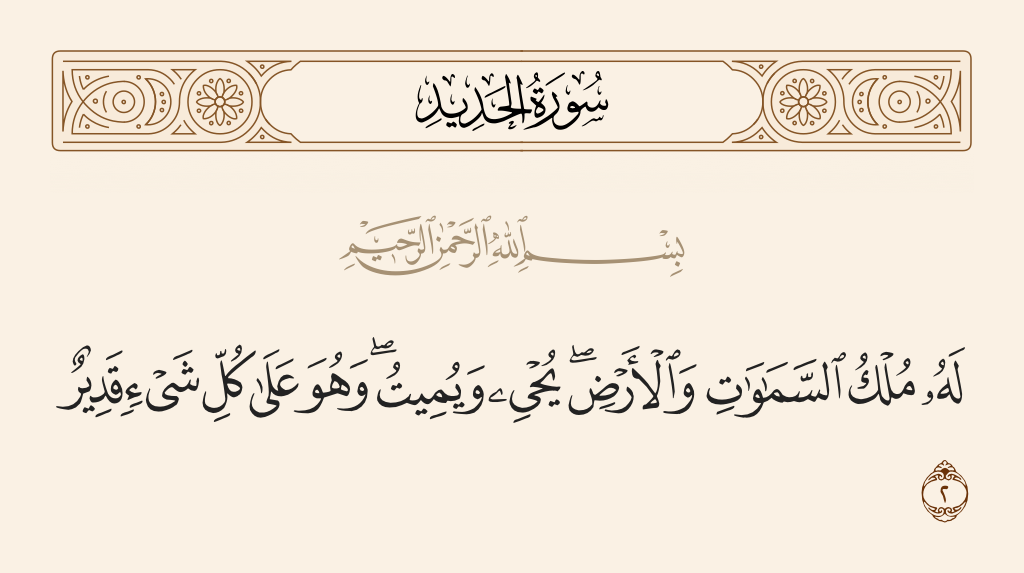 سُورَةُ الحَدِيدِ
بِسْمِ ٱللَّهِ ٱلرَّحْمَٰنِ ٱلرَّحِيمِ
لَهُۥ مُلْكُ ٱلسَّمَٰوَٰتِ وَٱلْأَرْضِ ۖ يُحْىِۦ وَيُمِيتُ ۖ وَهُوَ عَلَىٰ كُلِّ شَىْءٍ قَدِيرٌ
٢